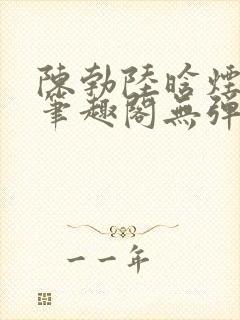 陳勃陸晗煙
筆趣閣無彈
一一年